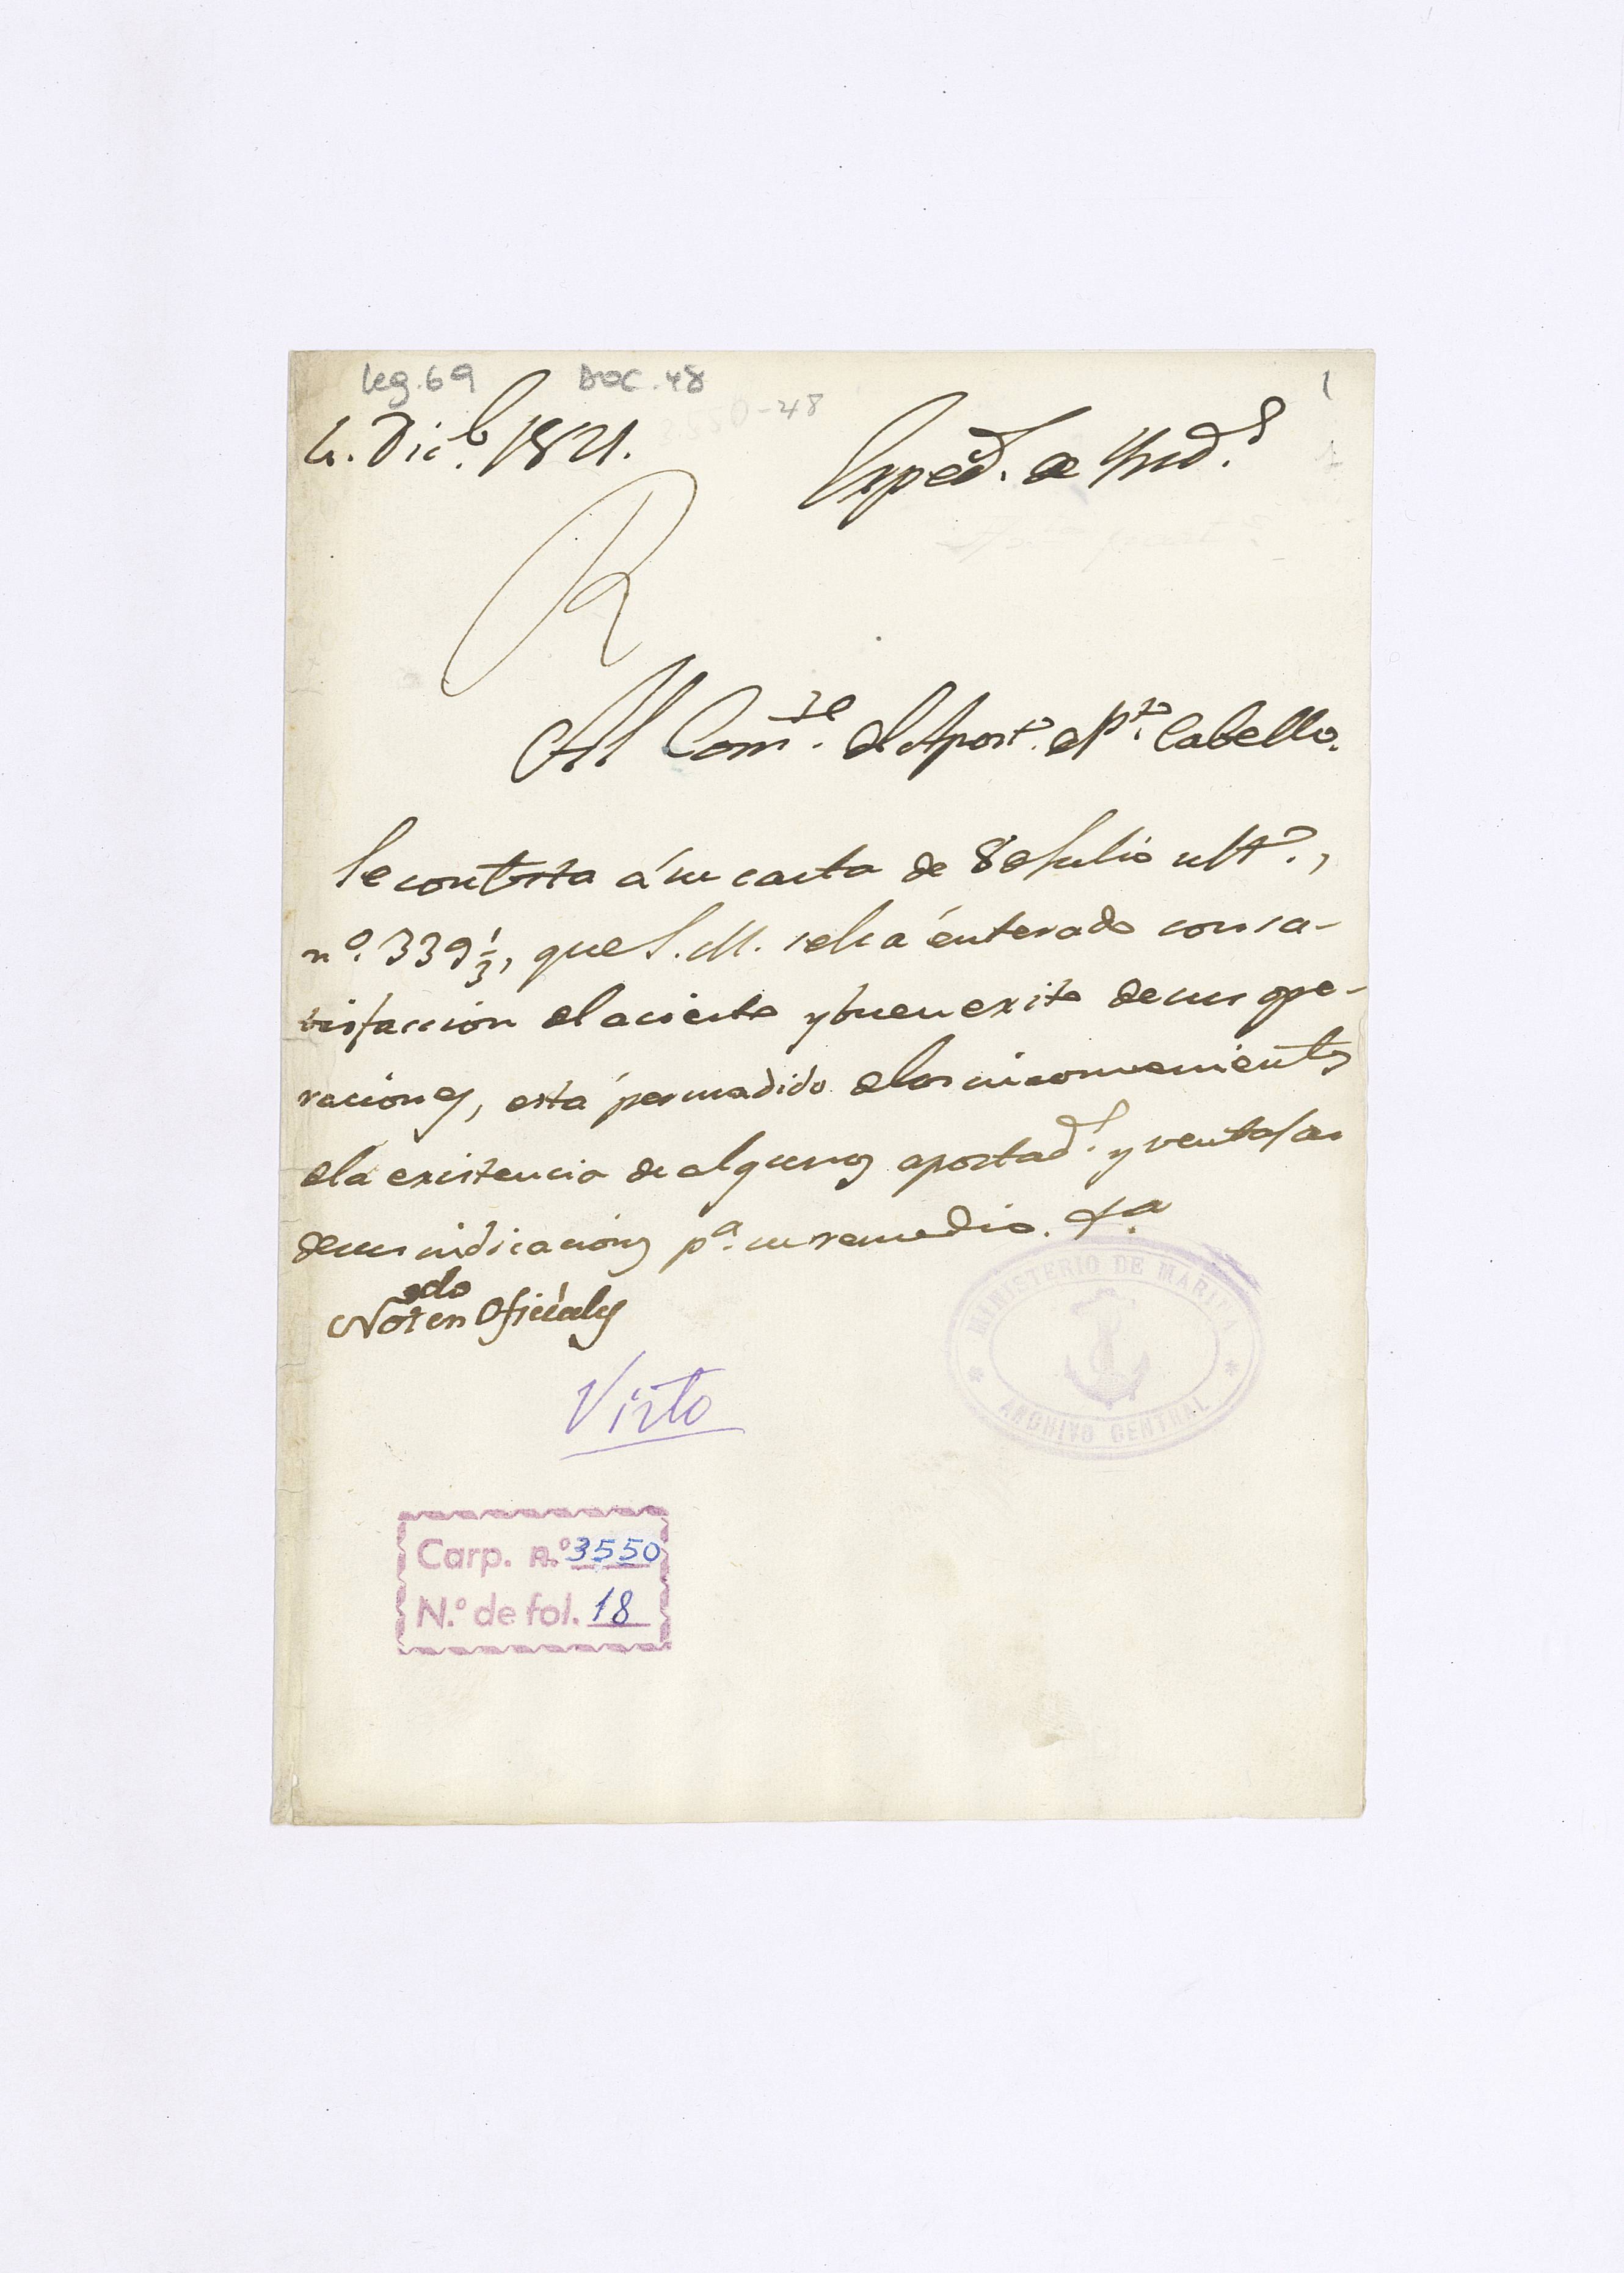 leg. 69 Doc. 48 1
3550-48
4. Dic.e 1821. Exped.s de Ynd.s
R
Al Com.te del Apost.o de P.to Cabello.
Se contesta á su carta de 8 de Julio ult.o,
n.o 339 1/3, que S. M. se ha enterado con sa-
tisfaccion del acierto y buen exito de sus ope-
raciones, está persuadido de los inconvenientes
de la existencia de algunos apostad.s y ventajas
de sus indicaciones p.a su remedio. &a
Notado en Oficiales
Visto
MINISTERIO DE MARINA
ARCHIVO CENTRAL
Carp. n.º 3550
N.º de fol. 18